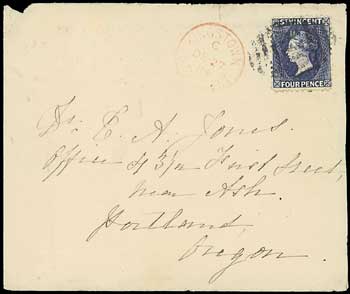 KINGSTOWN
ST VINCENT
FOUR PENCE
Dr. E. A. Jones.
Office First Street,
near Ash.
Portland,
Oregon.